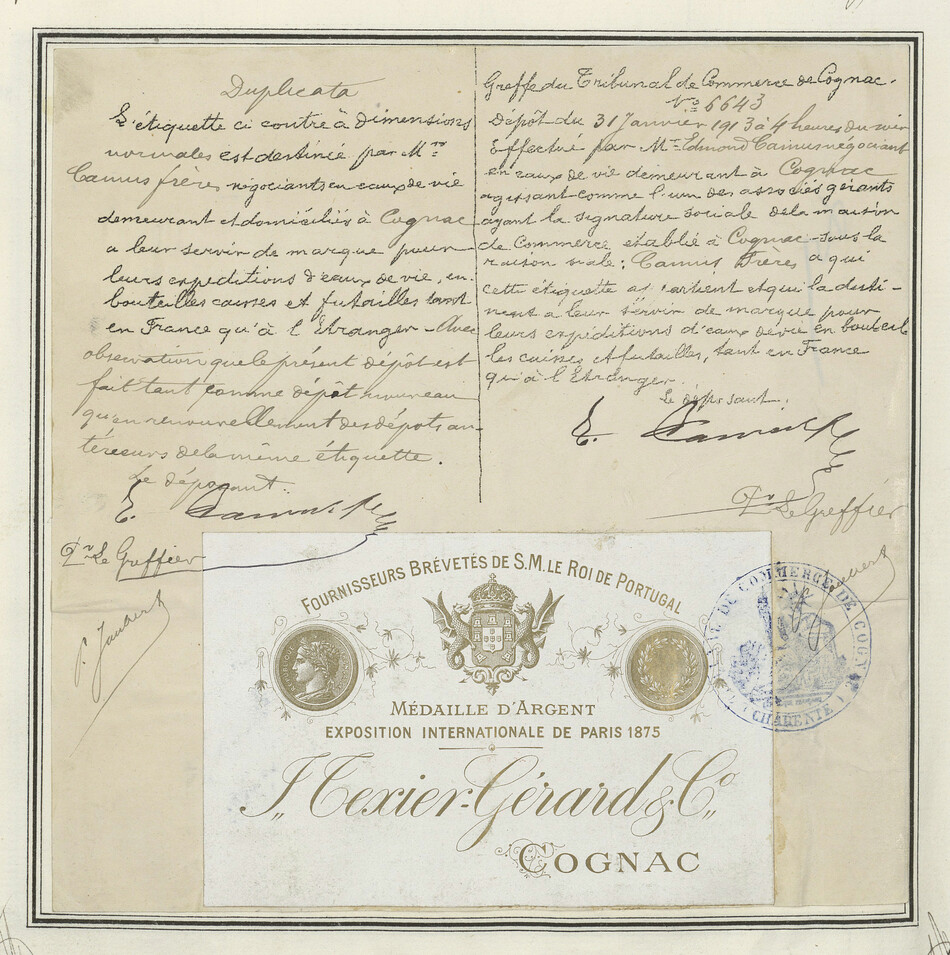 Duplicata
L'étiquette ci contre à dimensions
normales est destinée par Mrs
Camus frères négociants en eaux de vie
demeurant et domiciliés à Cognac
a leur servir de marque pour
leurs expéditions d'eaux de vie, en
bouteilles caisses et futailles tant
en France qu'à l'Etranger - Avec
observation que le présent dépôt est
fait tant comme dépôt nouveau
qu'en renouvellement des dépôts an-
térieurs de la même étiquette.
Le déposant:
E. Camus
Pr Le Greffier
P. Jaubert
Greffe du Tribunal de Commerce de Cognac.
No 6643
Dépôt du 31 Janvier 1913 à 4 heures du soir
Effectué par Mr Edmond Camus négociant
en eaux de vie demeurant à Cognac
agissant comme l'un des associés gérants
ayant la signature sociale de la maison
de Commerce établie à Cognac - sous la
raison sociale: Camus Frères à qui
cette étiquette appartient et qui la desti-
nent a leur servir de marque pour
leurs expéditions d'eaux de vie en bouteil
les caisses et futailles, tant en France
qu'à l'Etranger.
Le déposant:
E. Camus
Pr Le Greffier
Jaubert
FOURNISSEURS BRÉVETÉS DE S.M. LE ROI DE PORTUGAL
MÉDAILLE D'ARGENT
EXPOSITION INTERNATIONALE DE PARIS 1875
J. Texier-Gérard & Co
COGNAC
TRIBUNAL DE COMMERCE DE COGNAC
(CHARENTE)